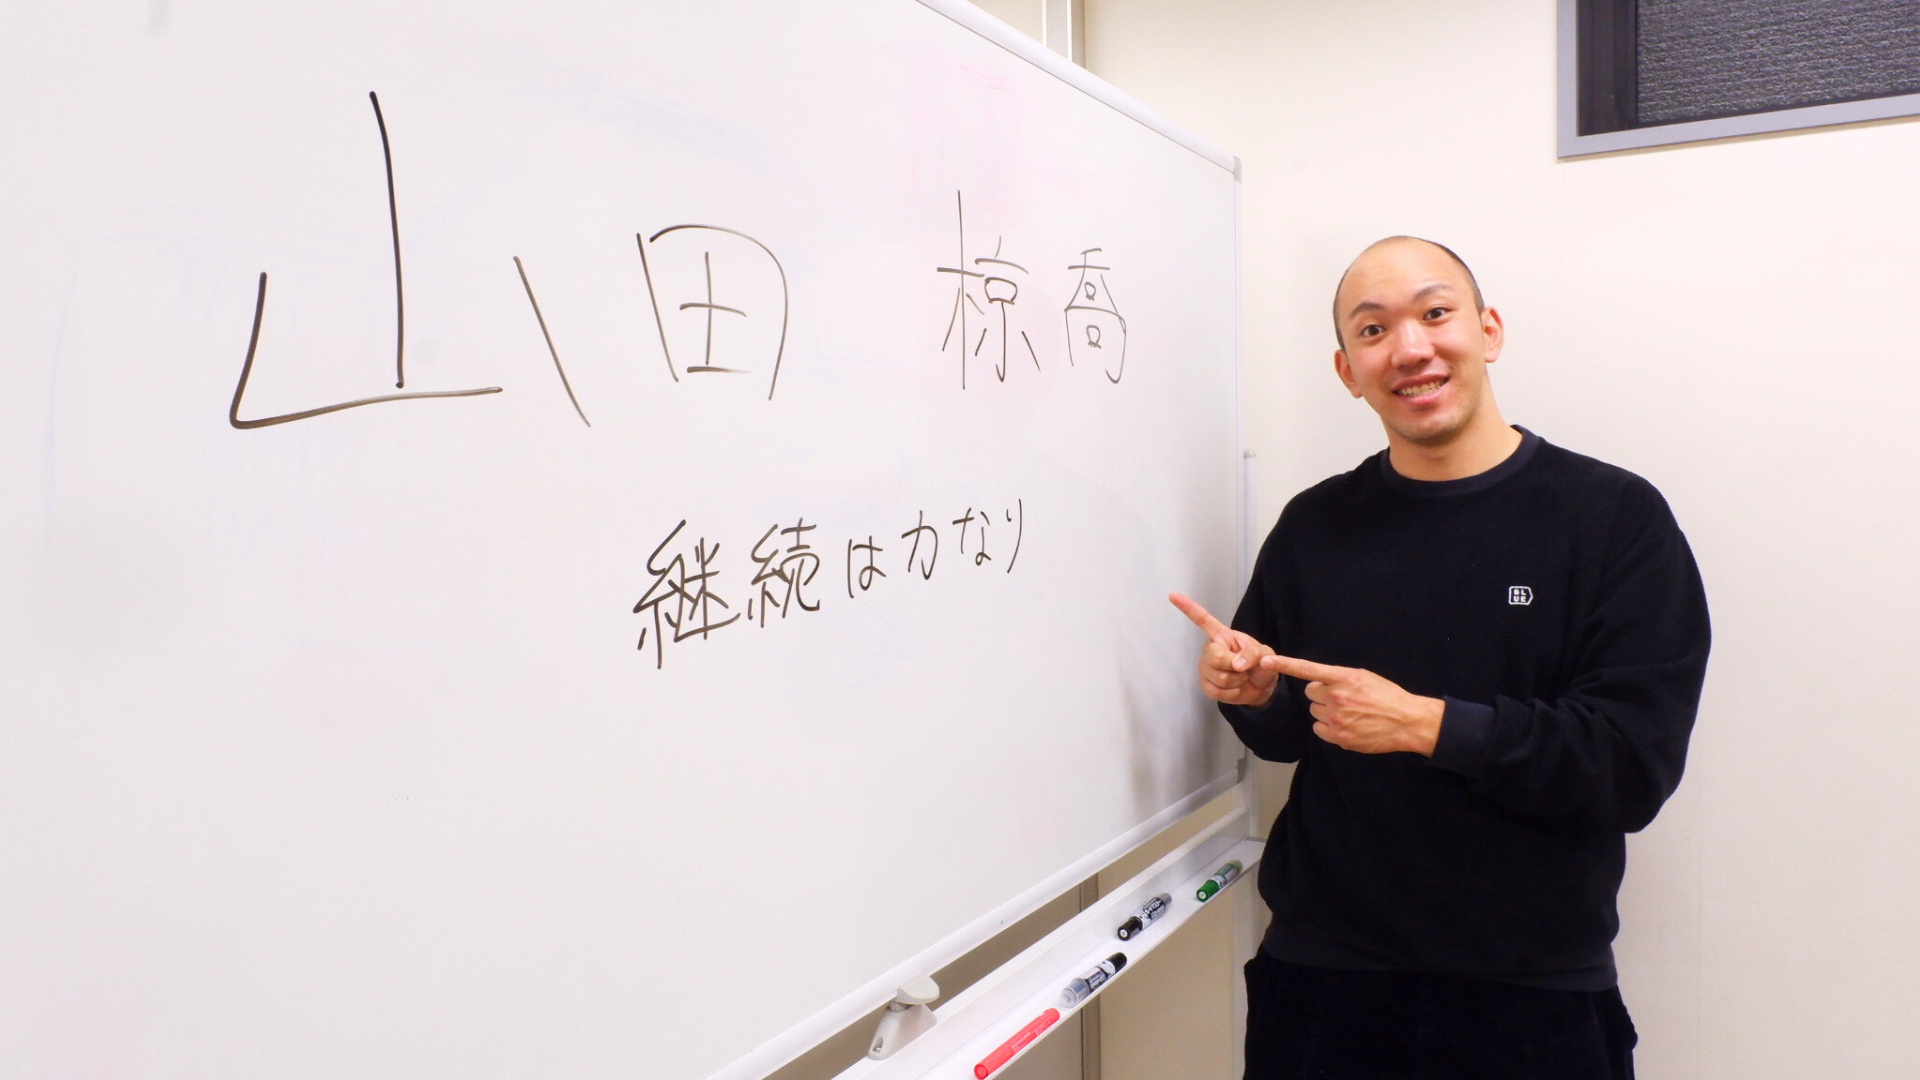 山田 椋喬
継続は力なり
BL
UE